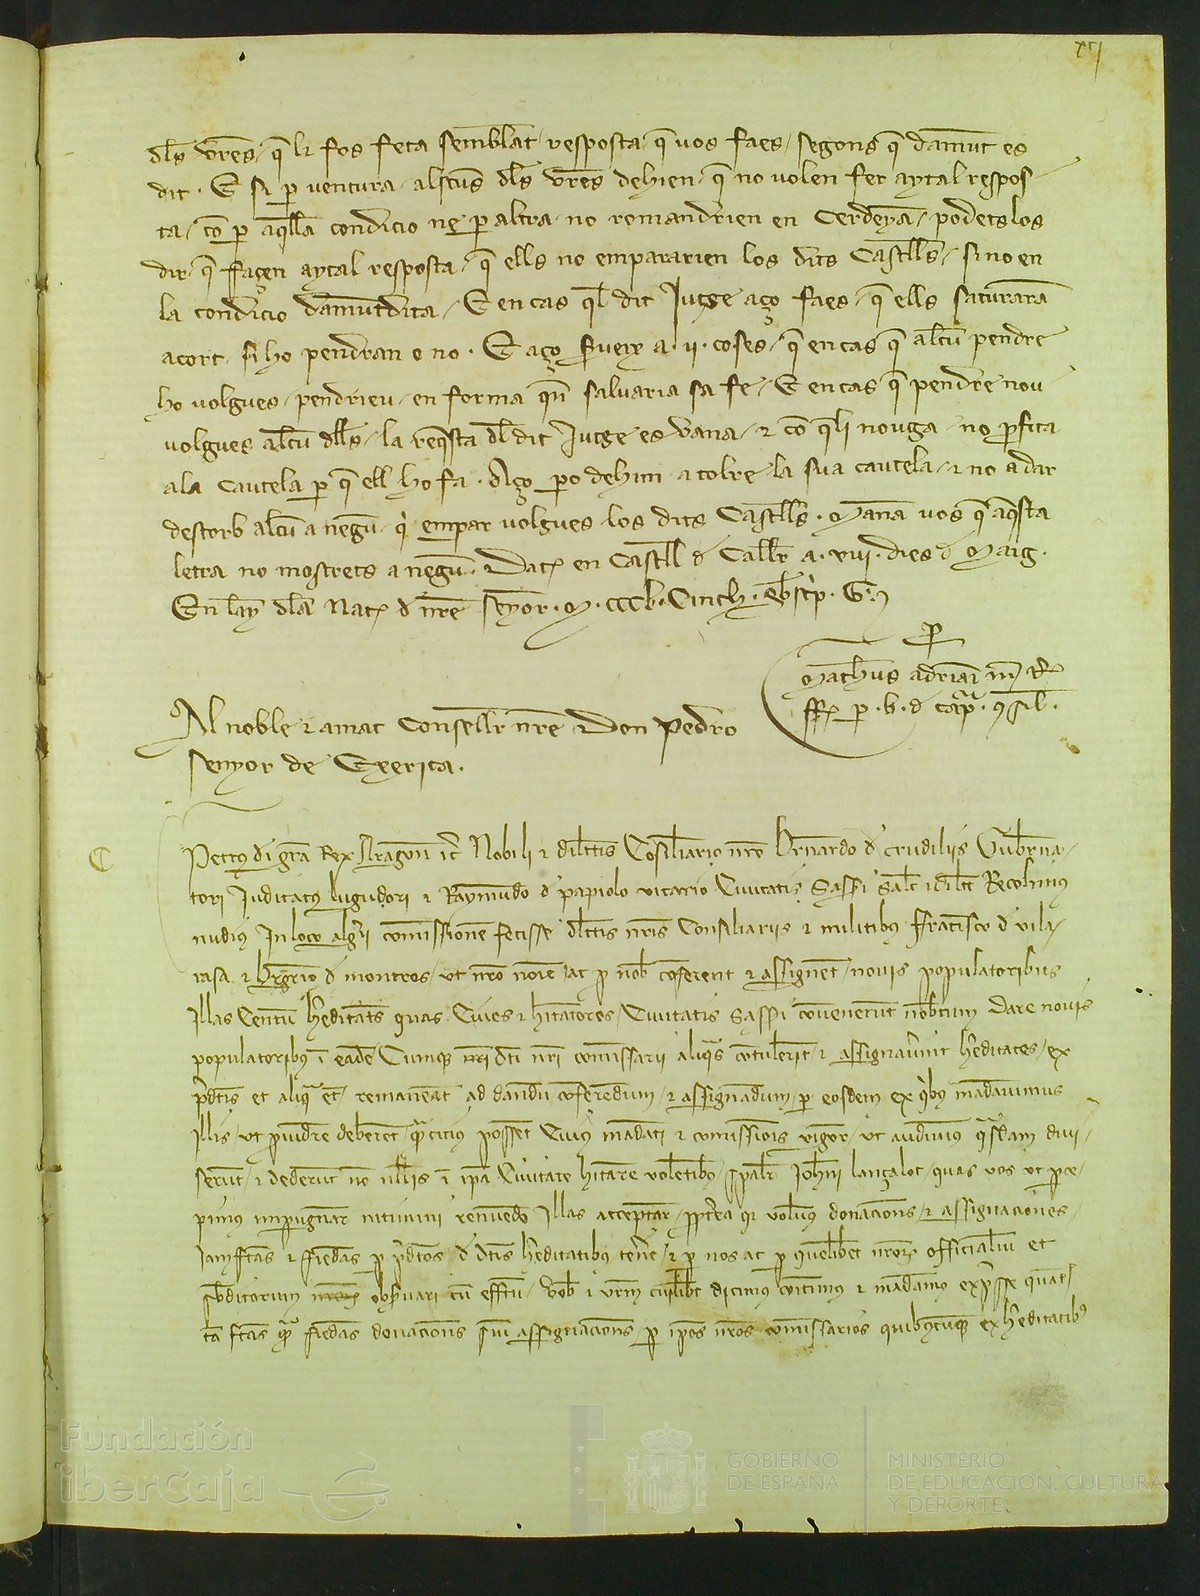 xvi
dls vres q li fos feta semblat resposta q vos faes segons q damut es
dit. E si p ventura alscus dls vres dehien q no volen fer aytal respos
ta co p aqlla condicio ne p altra no romandrien en Cerdeya podets los
dir q façen aytal resposta q ells no empararien los dits Castlls sino en
la condicio damutdita E en cas ql dit Jutge aço faes q ells saturara
acort si ho pendran o no. E aço a.ii.coses q en cas q alcu pendre
ho volgues pendrieu en forma qn salvaria sa fe E en cas q pendre nou
volgues alcu dlls la reqsta dl dit Jutge es vana z co no pfita
ala cautela p q ell ho fa. Aço po dehim a tolre la sua cautela z no a dar
destorb alcu a negu qi empar volgues los dits Castlls. Mana vos q aqsta
letra no mostrets a negu. Dat en Castll d Callr a.viii.dies d Maig.
En lay dla Nat d nre Senyor.M.cccl.Cinch.
p
Matheus adriai
Al noble z amat Consellr nre Don Pedro
Senyor de Exerica.
Petrus di gra Rex Aragon ic Nobili z dilctis Cosiliario nro Brnardo d crudiliis Gubrna
tori Judicatus lugudori z Raymundo d papiolo vicario Civitatis Sassi Salt z dilct Recolimus
nudius In loco algrii comissione fecisse dlctis nris Consiliariis z militibus Fracisco d vila
rasa z d montros ut nro noie ac p nob coferent z assignet novis populatoribus
Illas Centu hreditats quas Cives z hitatores Civitatis Sassi covenerut dare novis
populatoribus i eade Cumq dti nri comissarii aliqas cotulerit z assignavrint hreditates ex
pdtis et aliq et remaneat ad dandu coferedum z assignadum p eosdem ex qibus madavimus
Illis ut pvidre deberet qa citius posset Cuius madati z comissiois vigore ut audivimus qsdam divi
serut z dederut no nllis i ipa Civitate hitare voletibus spalr Johni lançalot quas vos ut pce
pimus impugnar nitimini renuedo Illas acceptar ppterea qr volum donacions z assignaciones
Jam ftas z fiedas p pdtos d dtis hreditatibus tene z p nos ac p quelibet nror officialiu et
sbditorum obsvari cu effcu Vob i vrm cuilibt dicimus comitimus z madamus expsse quat
ta ftas qa fiedas donacions siu assignacions p ipos nros comissarios quibuscuq ex hreditatibus
Fundación
iberCaja
GOBIERNO
DE ESPAÑA
MINISTERIO
DE EDUCACIÓN, CULTURA
Y DEPORTE